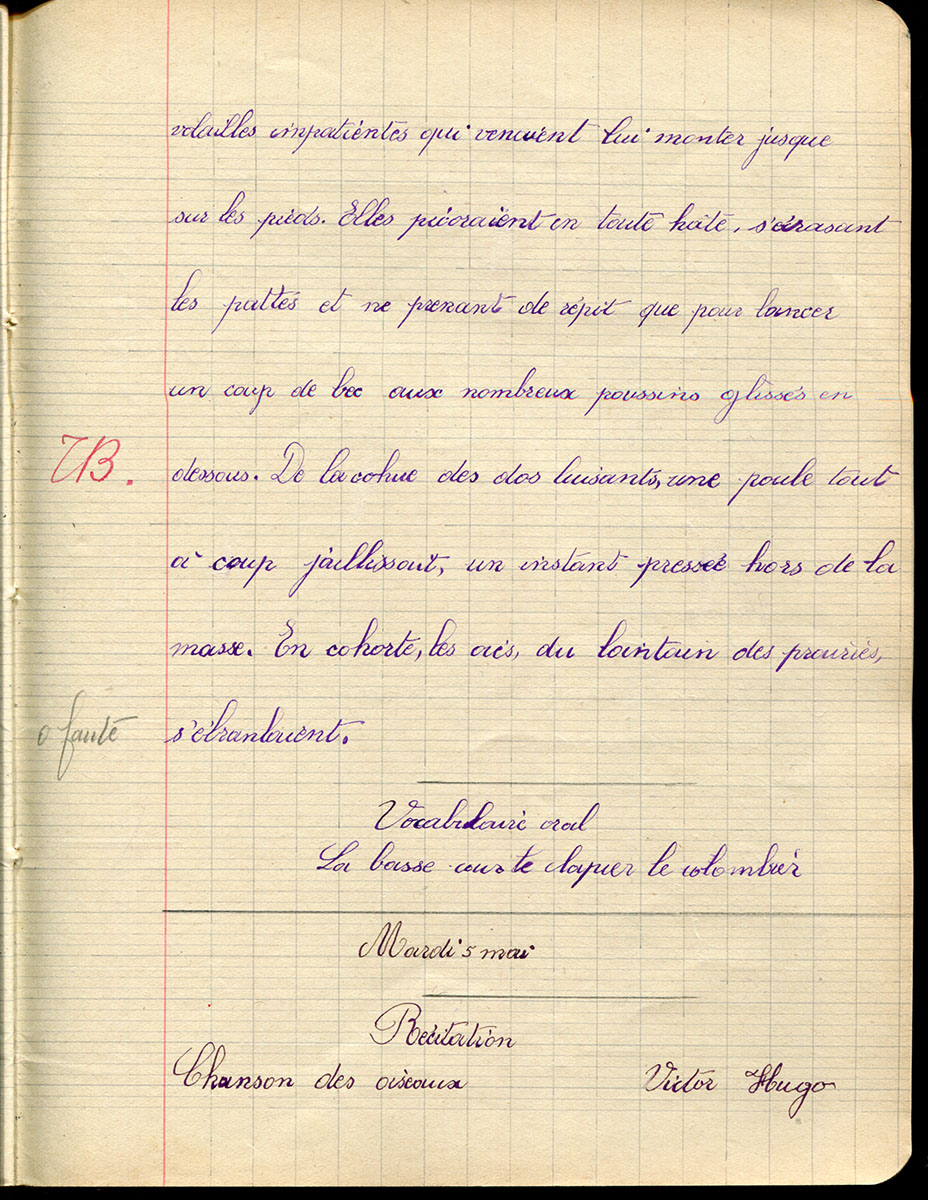 volailles impatientes qui venaient lui monter jusque
sur les pieds. Elles picoraient en toute hâte, s'écrasant
les pattes et ne prenant de répit que pour lancer
un coup de bec aux nombreux poussins glissés en
TB. dessous. De la cohue des dos luisants, une poule tout
à coup jaillissait, un instant pressée hors de la
masse. En cohorte, les oies, du lointain des prairies,
0 faute s'ébranlaient.
Vocabulaire oral
La basse cour le clapier le colombier
Mardi 5 mai
Récitation
Chanson des oiseaux Victor Hugo